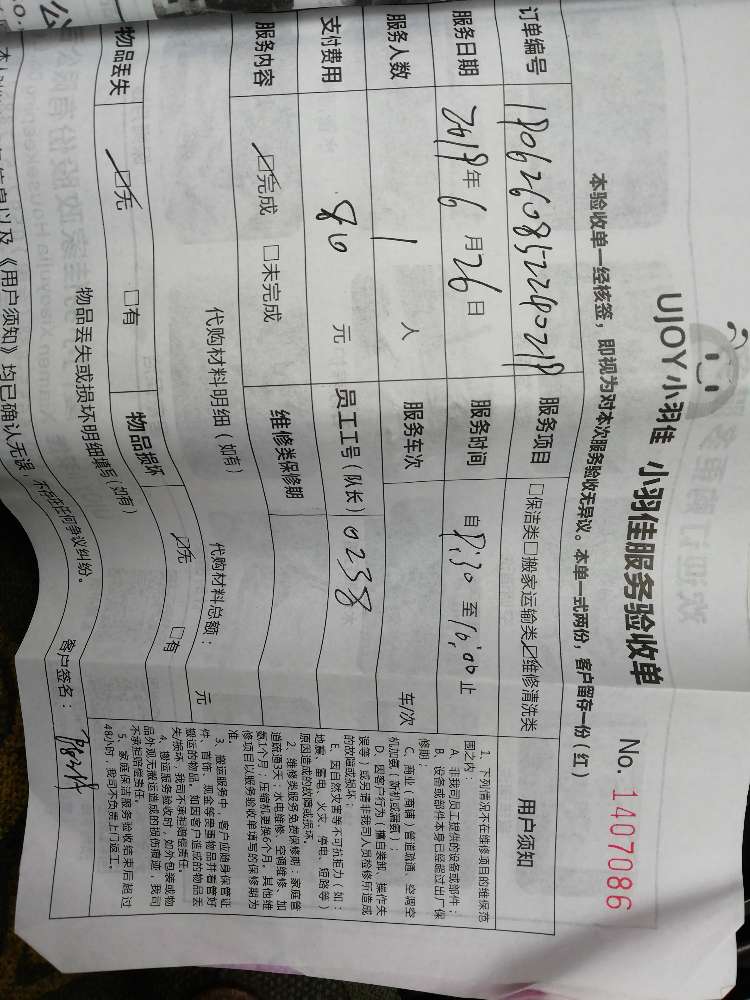 UJOY小羽佳 小羽佳服务验收单
No. 1407086
本验收单一经核签，即视为对本次服务验收无异议。本单一式两份，客户留存一份（红）
订单编号
服务项目 □保洁类□搬家运输类☑维修清洗类
服务日期 2018年6月26日
服务时间 自 至 止
服务人数 1 人
服务车次 车/次
支付费用 80 元
员工工号（队长） 0238
服务内容 ☑完成 □未完成
维修类保修期
代购材料明细（如有）
代购材料总额： 元
物品丢失 ☑无 □有
物品损坏 ☑无 □有
物品丢失或损坏明细填写（如有）
用户须知
1、下列情况不在维修项目的维保范围之内：
A、非我司员工提供的设备或部件；
B、设备或部件本身已经超过出厂保修期；
C、商业（商铺）管道疏通、空调空机加氟（新机或漏氟）；
D、因客户行为（擅自装卸、操作失误等）或另请非我司人员检修所造成的故障或损坏；
E、因自然灾害等不可抗拒力（如：地震、雷电、火灾、停电、短路等）原因造成的故障或损坏。
2、维修类服务免费保修期：家庭管道疏通3天；水电维修、空调维修、加氨1个月；压缩机更换6个月。其他维修项目以服务验收单填写的保修期为准。
3、搬运服务中，客户应随身保管证件、首饰、现金等贵重物品并看管好搬运的物品，如因客户造成的物品丢失/损坏，我司不承担赔偿责任。
4、搬运服务验收时，如外包装或物品外观无搬运造成的损伤痕迹，我司不承担赔偿责任。
5、家庭保洁服务验收结束后超过48小时，我司不负责上门返工。
信息以及《用户须知》均已确认无误，不存在任何争议纠纷。
客户签名：